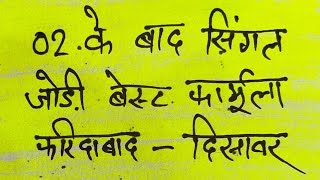 02. के बाद सिंगल
जोडी बेस्ट. फार्मूला
फरिदाबाद - दिसावर